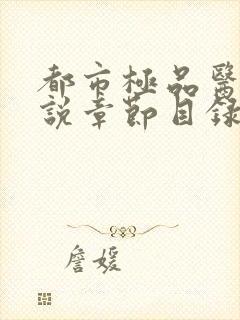 都市極品醫
說章節目錄
詹媛